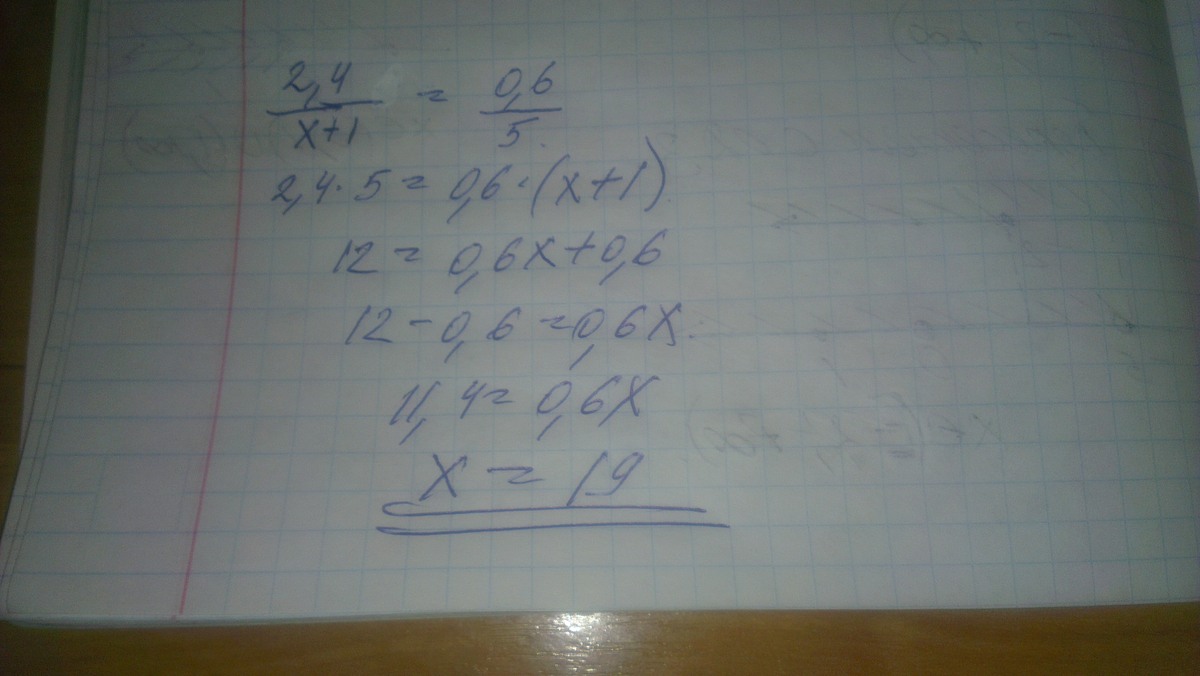 2,4/x+1 = 0,6/5.
2,4·5=0,6·(x+1).
12=0,6x+0,6
12-0,6=0,6x.
11,4=0,6x
x=19